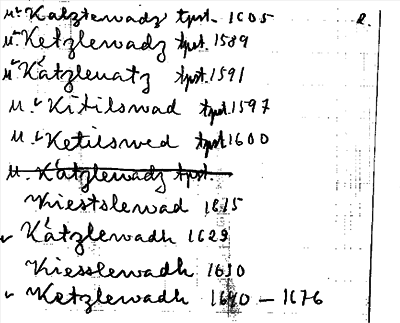 u. Kalztewadz tpst. 1605 2.
u. Ketzlewadz tpst. 1589
u. Kátzleuatz tpst. 1591
u. Kitilswad tpst. 1597
u. Ketilswed tpst. 1600
u. Kátzlewadz tpst.
Kiestslewad 1615
Kátzlewadh 1629
Kiesslewadh 1630
Ketzlewadh 1640 – 1676